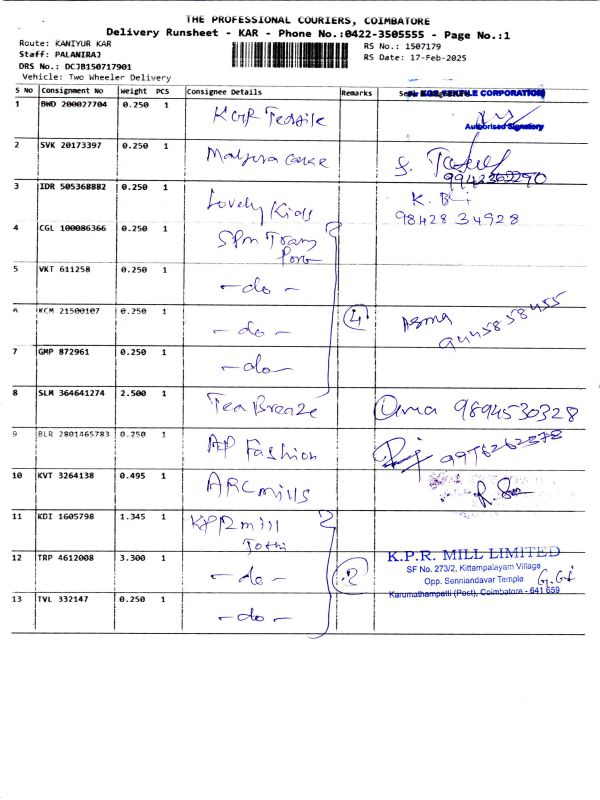 THE PROFESSIONAL COURIERS, COIMBATORE
Delivery Runsheet - KAR - Phone No.:0422-3505555 - Page No.:1
Route: KANIYUR KAR
RS No.: 1507179
Staff: PALANIRAJ
RS Date: 17-Feb-2025
DRS No.: DCJB150717901
Vehicle: Two Wheeler Delivery
S No Consignment No Weight PCS Consignee Details Remarks
1 BWD 200027704 0.250 1 KGR Textile
KGR TEXTILE CORPORATION
Authorised Signatory
2 SVK 20173397 0.250 1
9942362290
3 IDR 505368882 0.250 1 Lovely Kids
98428 34928
4 CGL 100086366 0.250 1 SPM Trans
Port
5 VKT 611258 0.250 1 -do-
6 KCM 21500107 0.250 1 -do- 4 Asma
9445858455
7 GMP 872961 0.250 1 -do-
8 SLM 364641274 2.500 1 Tea Breaze Uma 9894530328
9 BLR 2801465783 0.250 1 AP Fashion
9976262378
10 KVT 3264138 0.495 1 ARC mills
11 KDI 1605798 1.345 1 KPR mill
Jothi
12 TRP 4612008 3.300 1 -do- 2
K.P.R. MILL LIMITED
SF No. 273/2, Kittampalayam Village
Opp. Senniandavar Temple
Karumathampatti (Post), Coimbatore - 641 659
13 TVL 332147 0.250 1 -do-